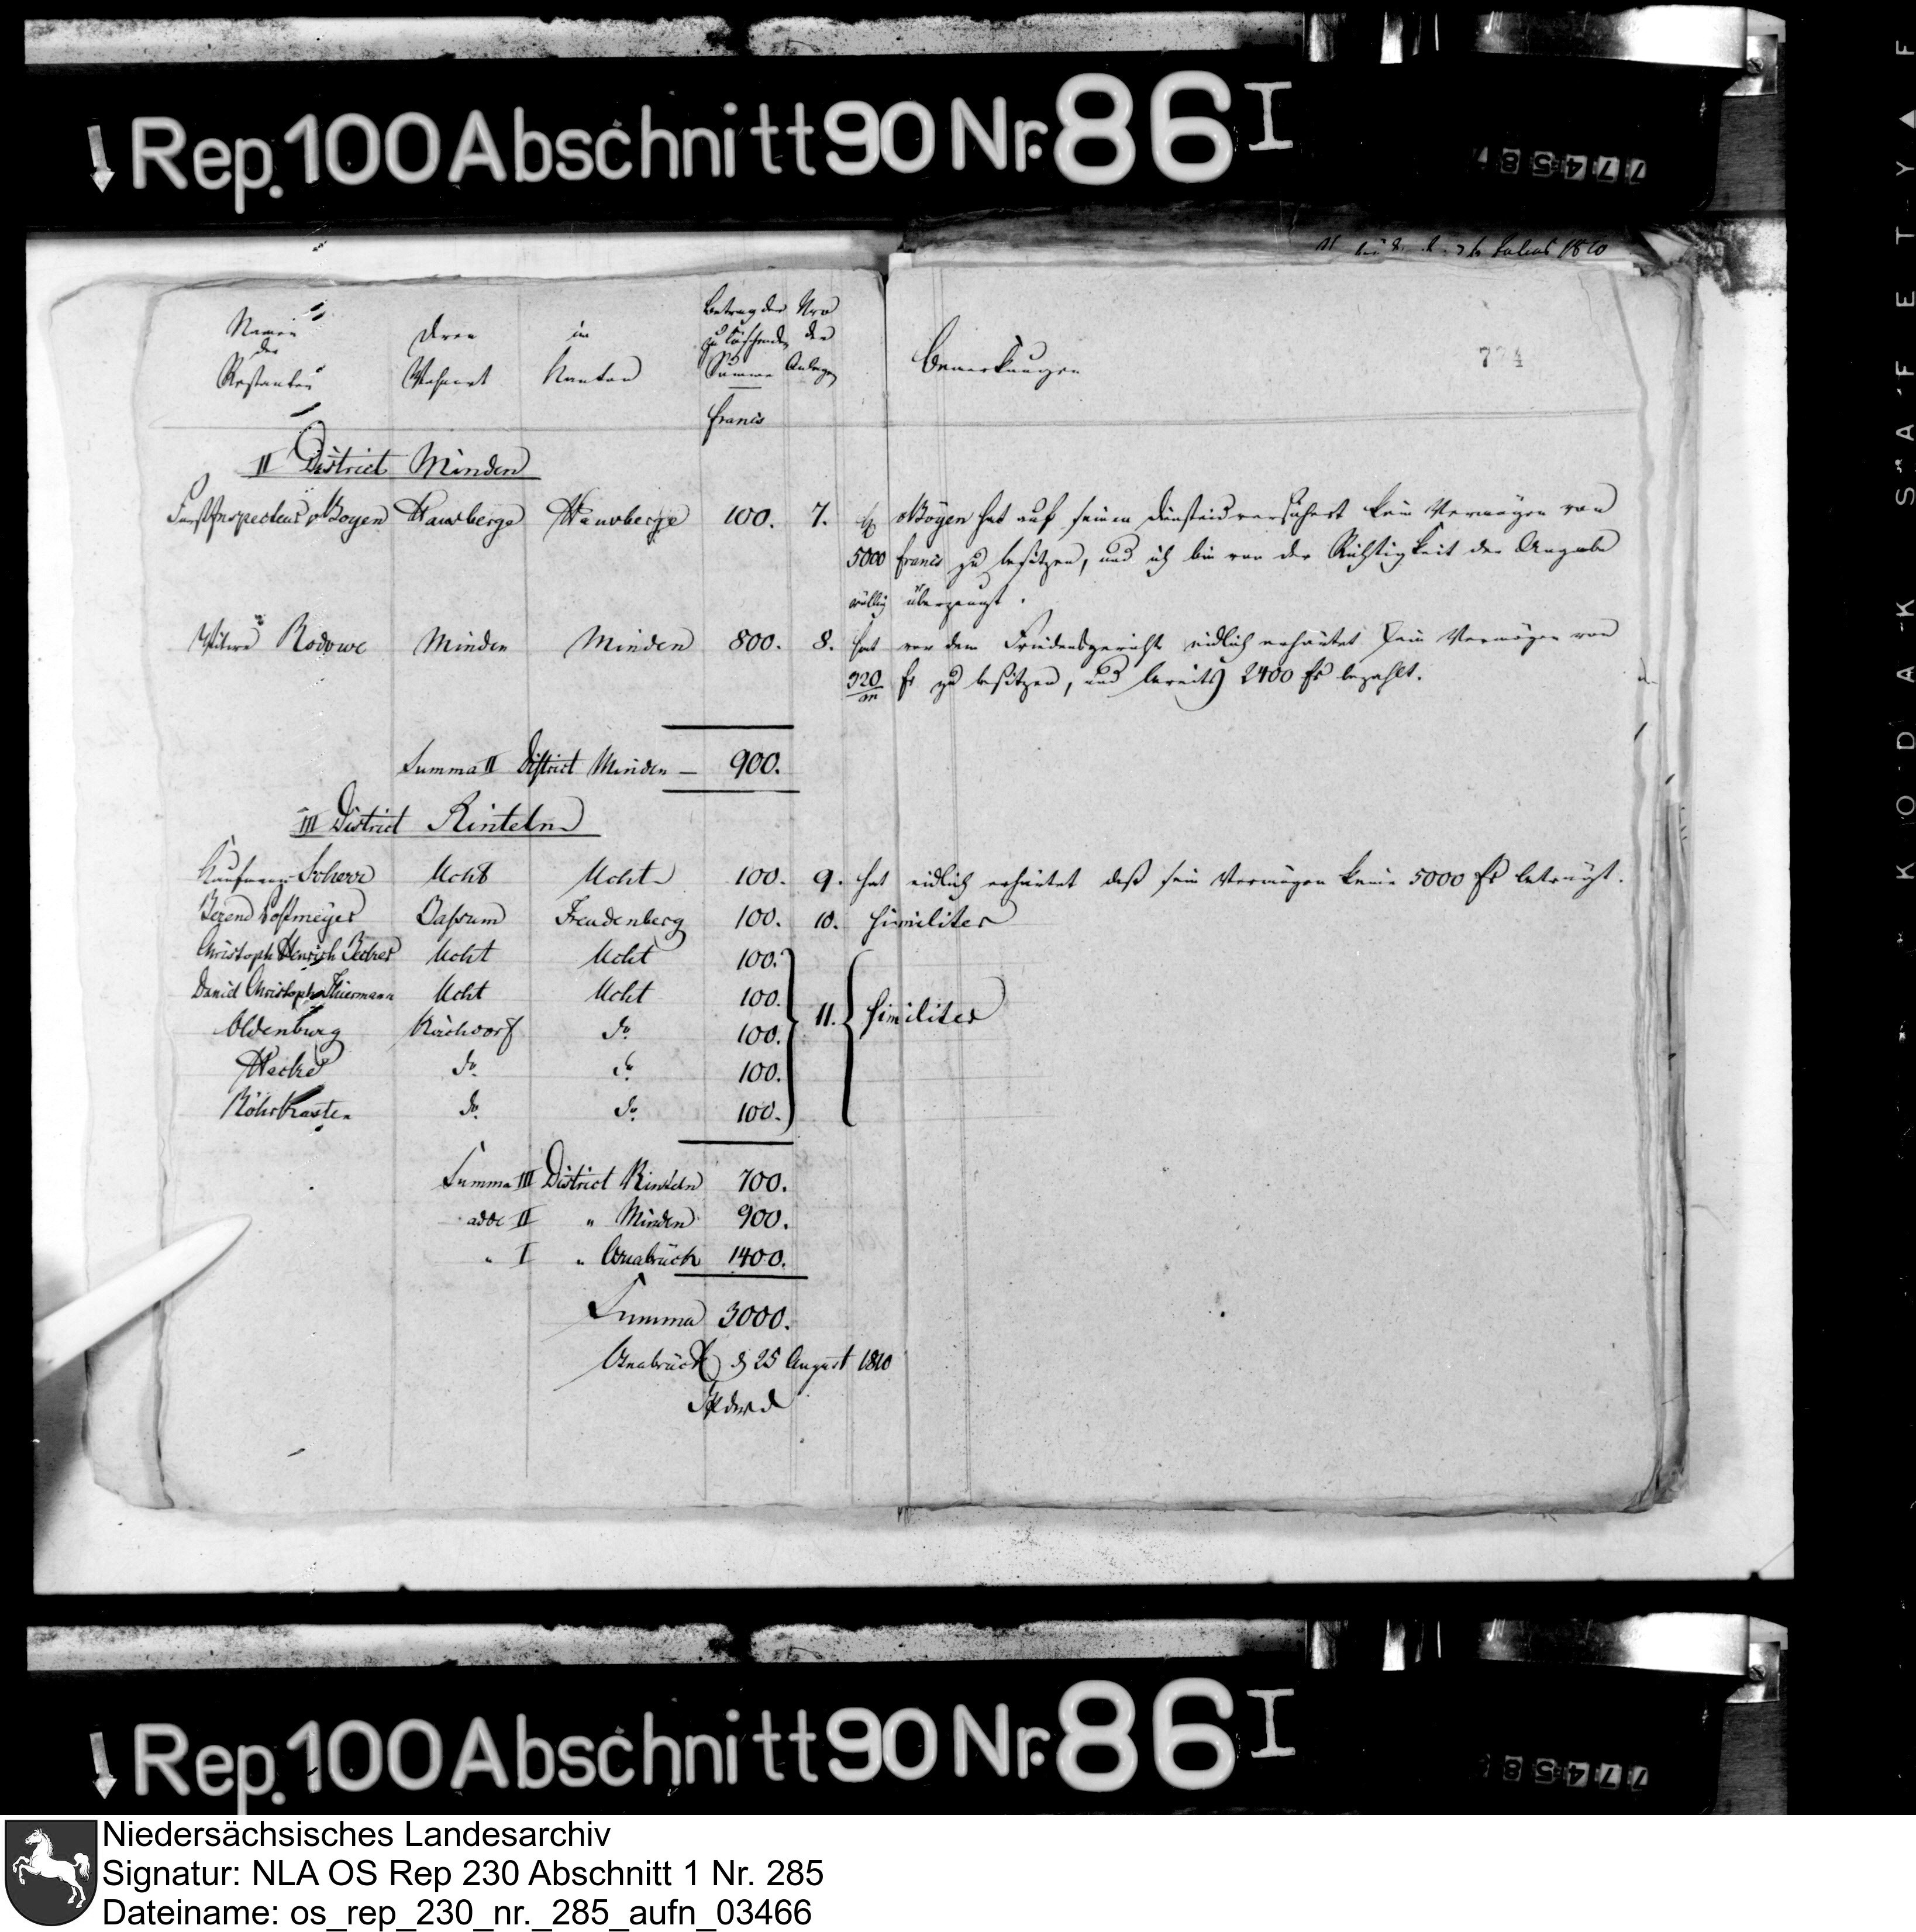 Rep. 100 Abschnitt 90 Nr. 86 I
77458
Julius 1810
774
Namen der Restanten
deren Wohnort
im Kanton
Betrag der zu löschenden Summe
francs
Nro der Anlage
Bemerkungen
II District Minden
Forst Inspecteur v Boyen Hausberge Hausberge 100. 7. v Boyen hat auf seinen Diensteid versichert kein Vermögen von
5000 francs zu besitzen, und ich bin von der Richtigkeit der Angabe
völlig überzeugt.
Witwe Rodowe Minden Minden 800. 8. hat vor dem Friedensgericht eidlich erhärtet kein Vermögen von
320/m fr zu besitzen, und bereits 2400 fr bezahlt.
Summa II District Minden — 900.
III District Rinteln
Kaufmann Scherr Ucht Ucht 100. 9. hat eidlich erhärtet daß sein Vermögen keine 5000 fr beträgt.
Berend Lohmeyer Bassum Freudenberg 100. 10. similiter
Christoph Henrich Becker Ucht Ucht 100.
Daniel Christoph Thiermann Ucht Ucht 100.
Oldenburg Kirchdorf do. 100. 11. similiter
Hecker do. do. 100.
Röhrkasten do. do. 100.
Summa III District Rinteln 700.
adde II " Minden 900.
" I " Osnabrück 1400.
Summa 3000.
Osnabrück d 25 August 1810
Rep. 100 Abschnitt 90 Nr. 86 I
77458
KODAK SAFETY F
Niedersächsisches Landesarchiv
Signatur: NLA OS Rep 230 Abschnitt 1 Nr. 285
Dateiname: os_rep_230_nr._285_aufn_03466